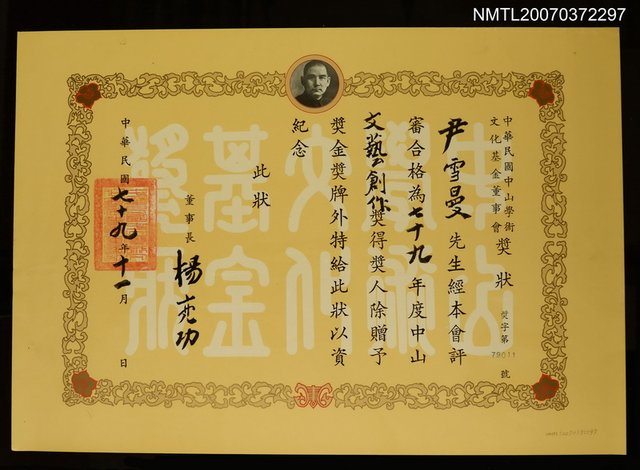 NMTL20070372297
中華民國中山學術
文化基金董事會
獎狀
獎字第79011號
尹雪曼先生經本會評
審合格為七十九年度中山
文藝創作獎得獎人除贈予
獎金獎牌外特給此狀以資
紀念
此狀
董事長 楊亮功
中華民國七十九年十一月 日